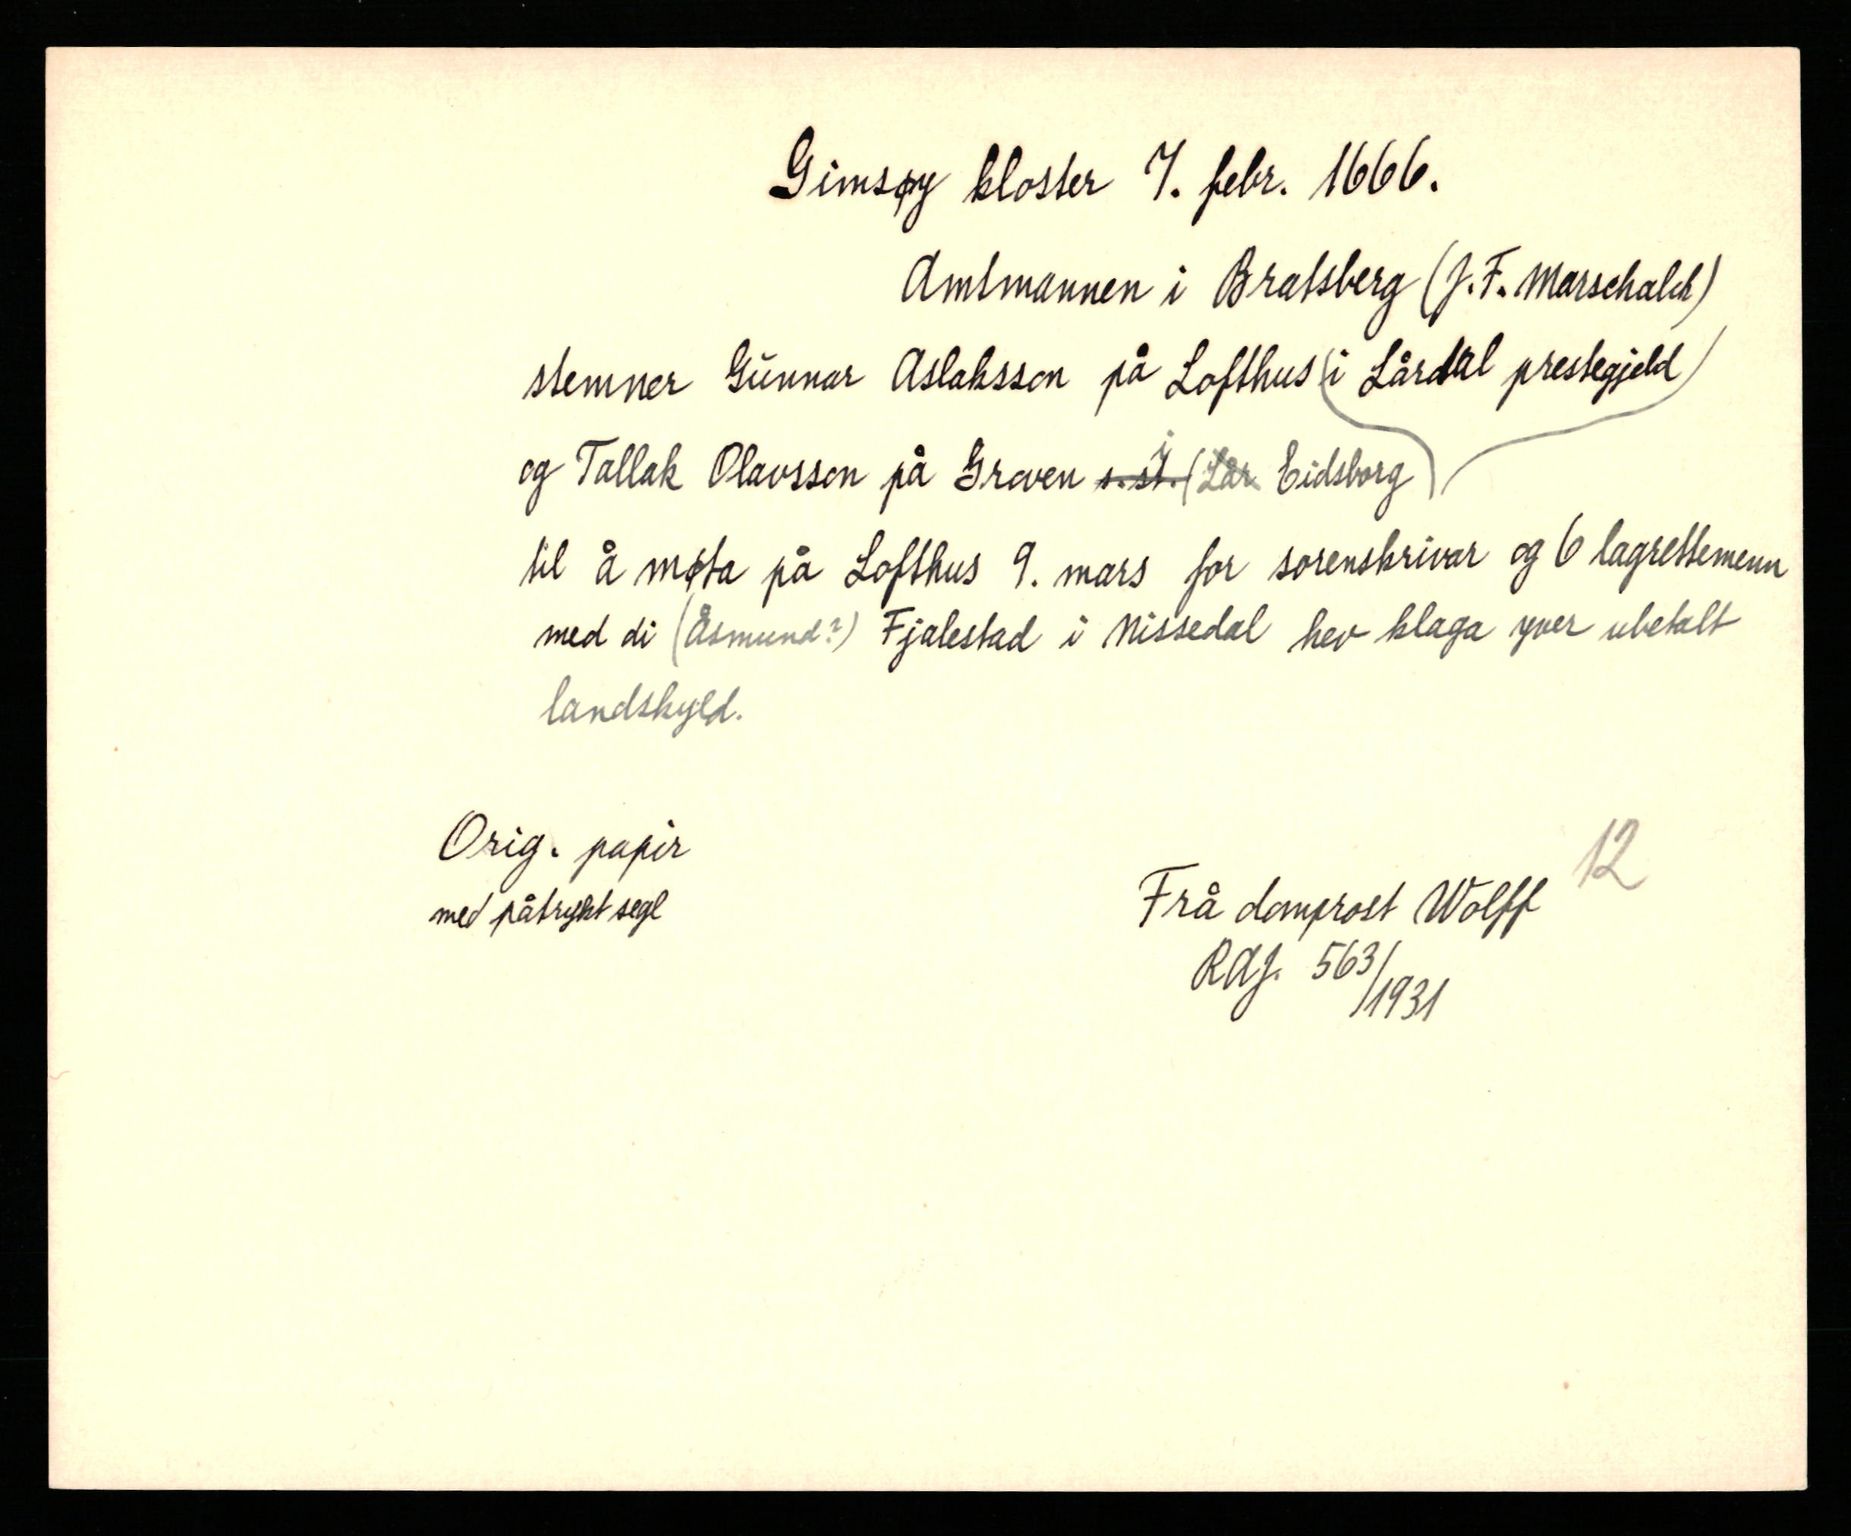 Gimsøy kloster 7. febr. 1666.
Amtmannen i Bratsberg (J. F. Marschalck)
stemner Gunnar Aslaksson på Lofthus (i Lårdal prestegjeld)
og Tallak Olavsson på Groven s. st. (Lår i Eidsborg)
til å møta på Lofthus 9. mars for sorenskrivar og 6 lagrettemenn
med di (Åsmund?) Fjalestad i Nissedal hev klaga yver ubetalt
landskyld.
Orig. papir
med påtrykt segl
12
Frå domprost Wolff
RAJ. 563/1931